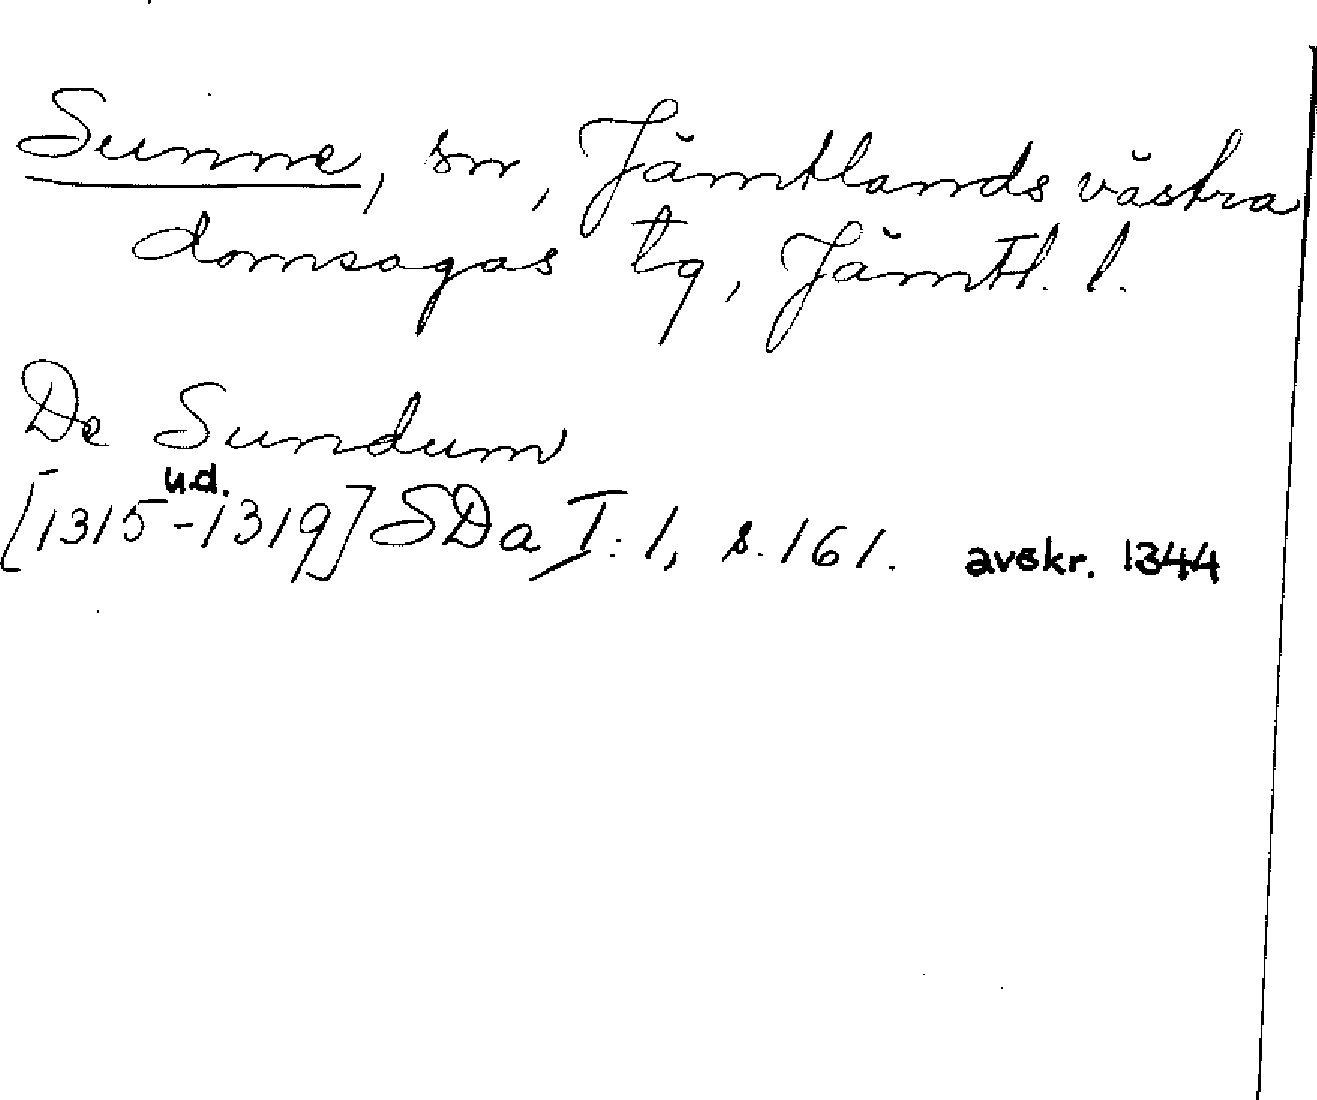 Sunne, sn, Jämtlands västra
domsagas tg, Jämtl. l.
De Sundum
u.d.
[1315-1319] SDa I:1, s. 161. avskr. 1344